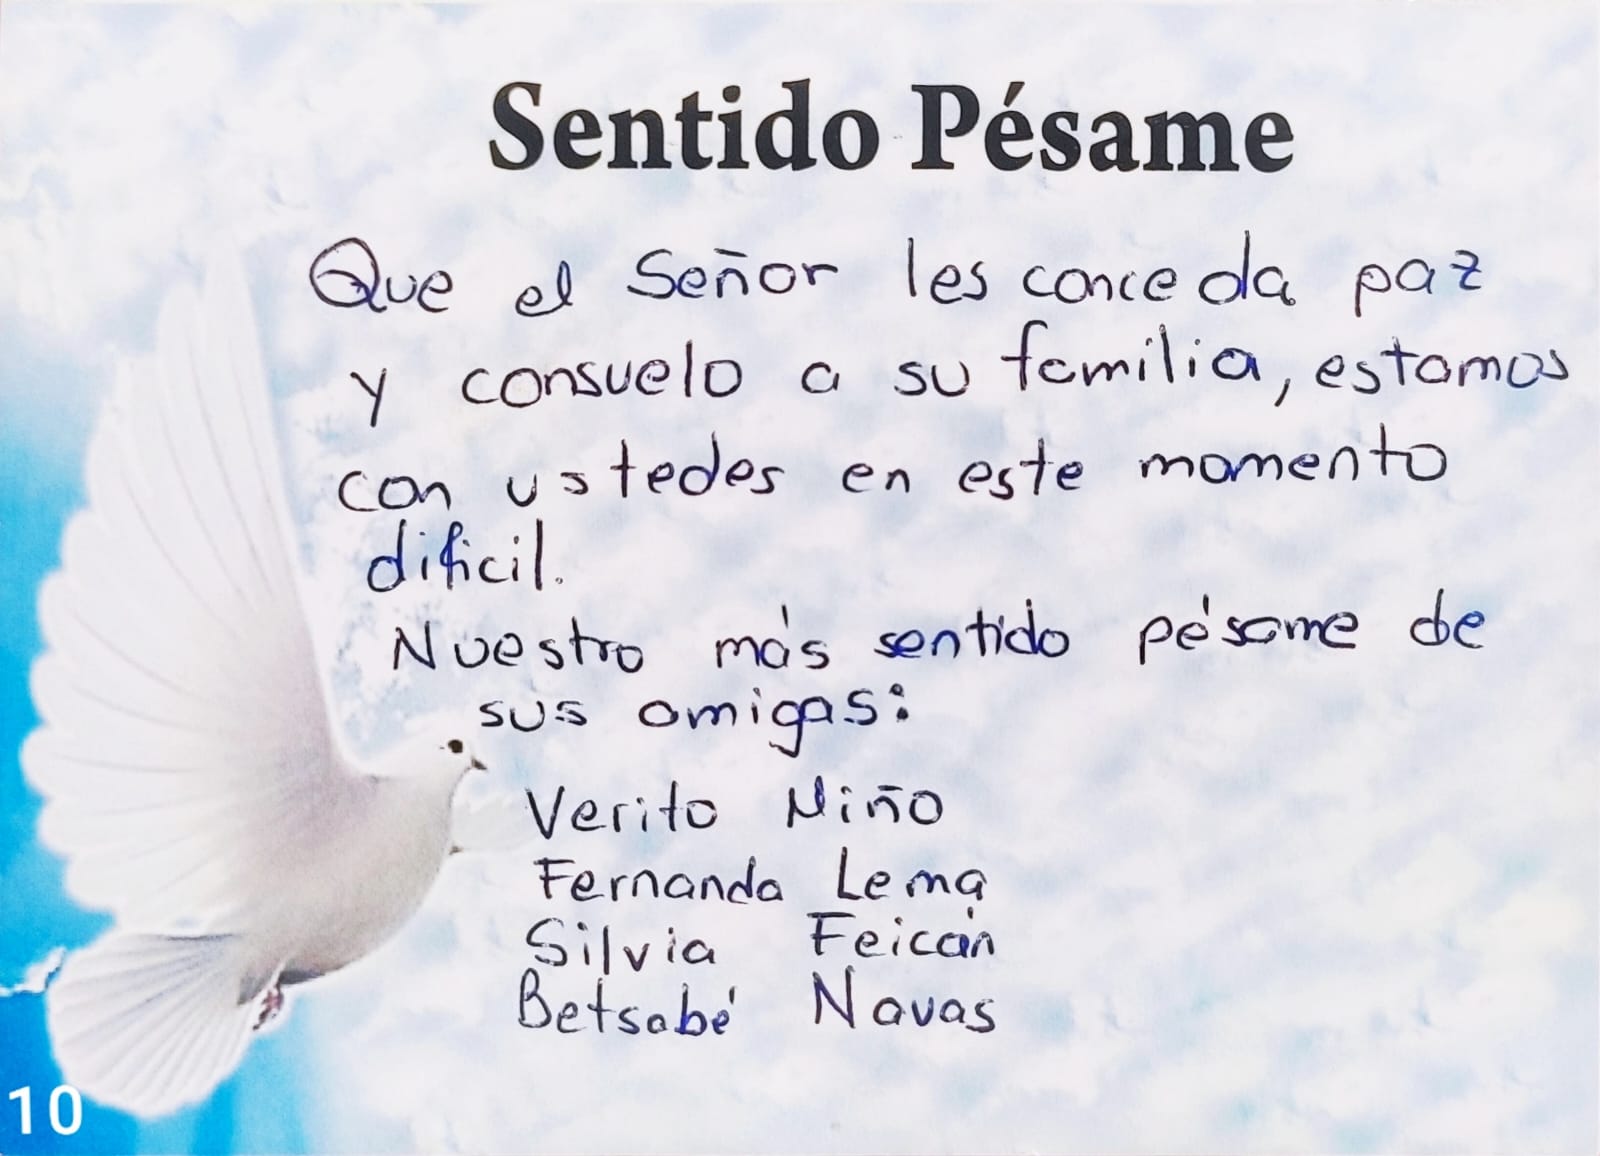 Sentido Pésame
Que el Señor les conceda paz
y consuelo a su familia, estamos
con ustedes en este momento
dificil.
Nuestro más sentido pésame de
sus amigas:
Verito Niño
Fernanda Lema
Silvia Feicán
Betsabé Navas
10